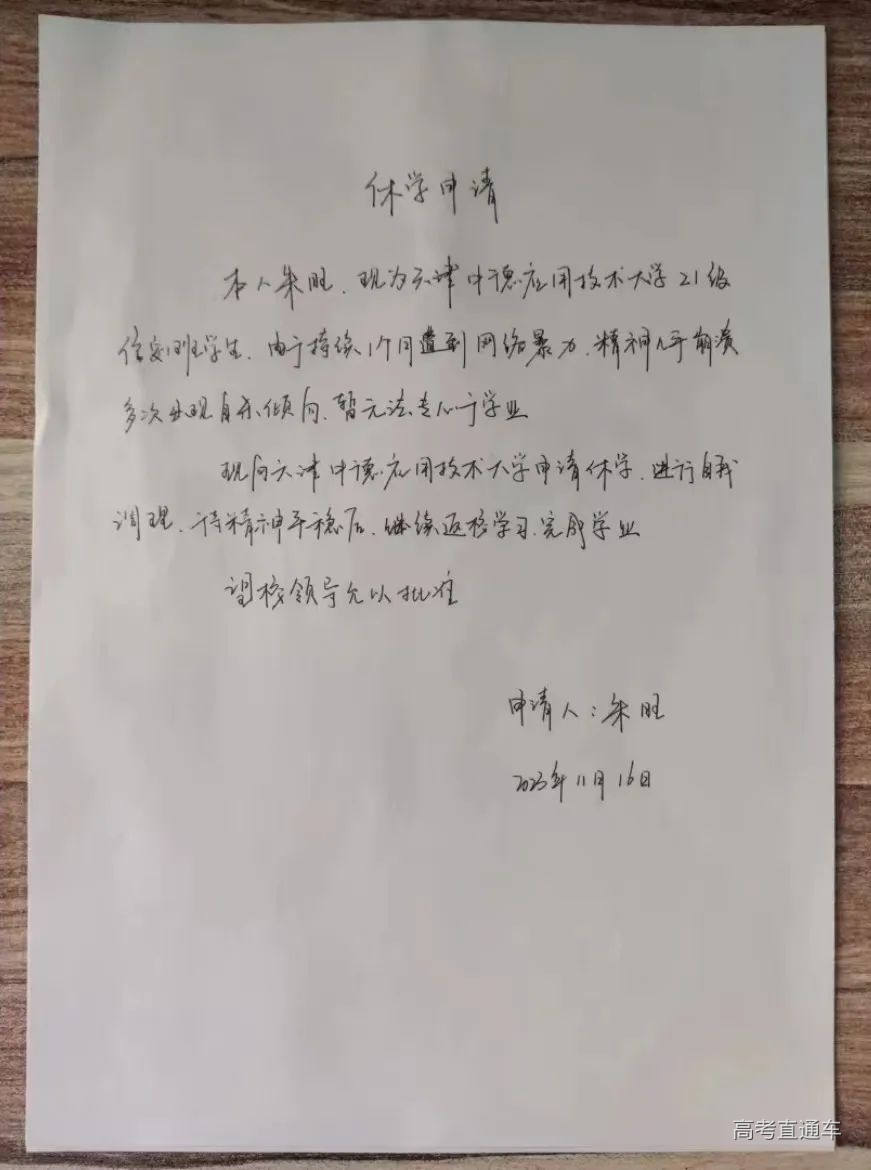 休学申请
本人朱旺、现为天津中德应用技术大学21级
信安班学生、由于持续1个月遭到网络暴力、精神几乎崩溃
多次出现自杀倾向、暂无法专心于学业
现向天津中德应用技术大学申请休学、进行自我
调理、待精神平稳后、继续返校学习、完成学业
望校领导允以批准
申请人：朱旺
2023年11月16日
高考直通车